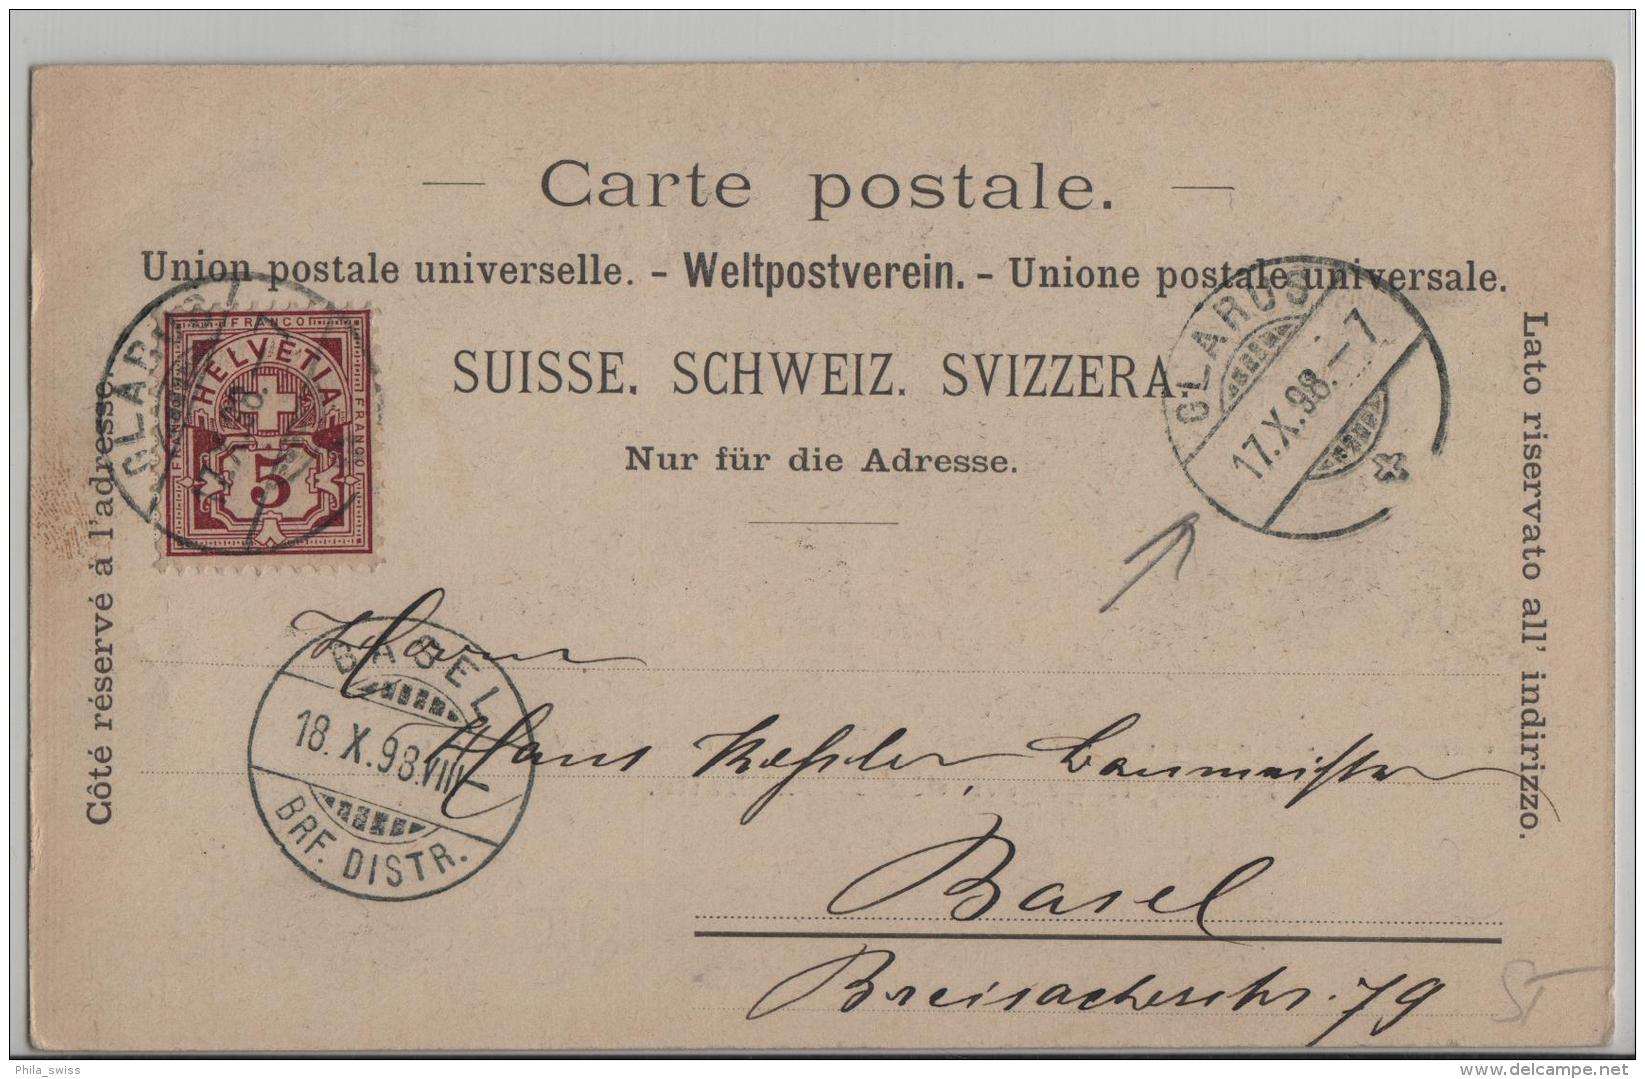 — Carte postale. —
Union postale universelle. - Weltpostverein. - Unione postale universale.
SUISSE. SCHWEIZ. SVIZZERA.
Nur für die Adresse.
Côté réservé à l'adresse
Lato riservato all' indirizzo.
FRANCO
HELVETIA
FRANCO
FRANCO
5
GLARUS
GLARUS
17.X.98.-7
BASEL
18.X.98.VIII-
BRF. DISTR.
Herrn
Hans Kessler, Baumeister
Basel
Breisacherstr. 79
ST
Phila_swiss
delcampe.net